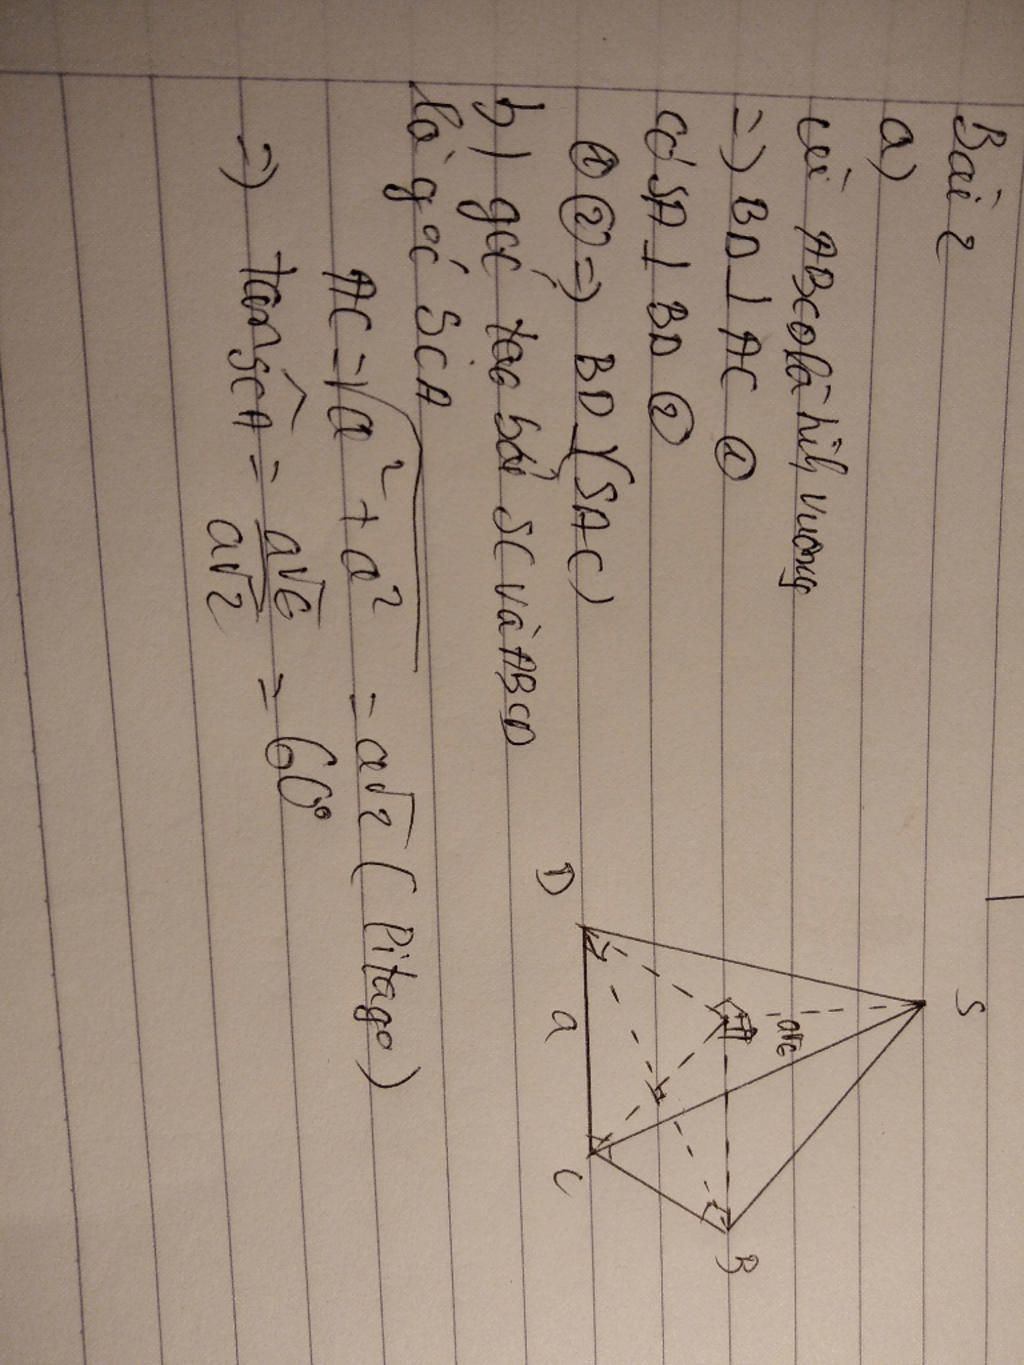 Bài 2
a)
Vì ABCD là hình vuông
=) BD ⊥ AC ①
Có SA ⊥ BD ②
① ② =) BD ⊥ (SAC)
b) góc tạo bởi SC và ABCD
là góc SCA
AC = √a² + a² = a√2 (Pitago)
=) tan SCA = a√6/a√2 = 60°
S
a√6
A
B
D
a
C